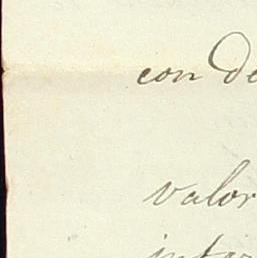 con de
valor
inter